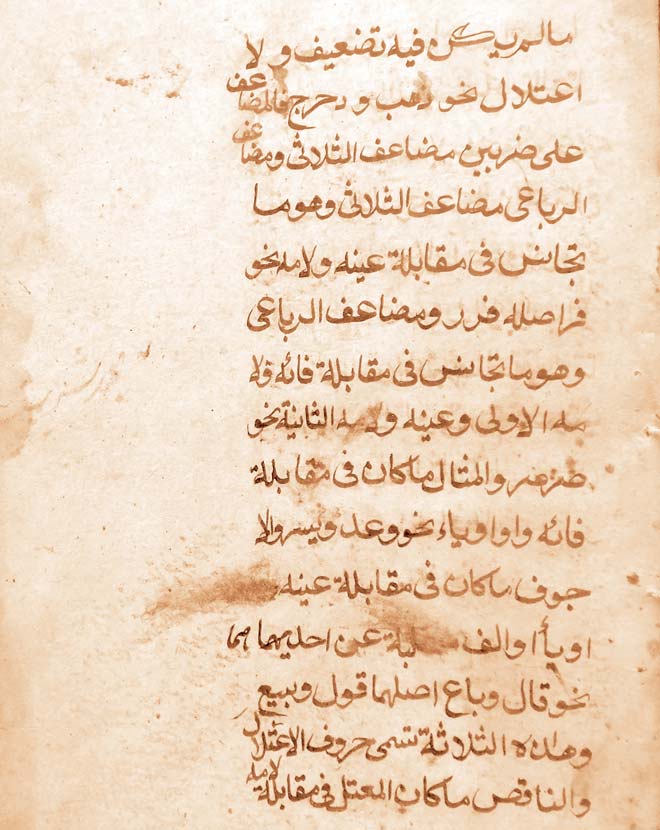 مالم يكن فيه تضعيف ولا
اعتلال نحو ذهب ودحرج فالمضاعف
على ضربين مضاعف الثلاثى ومضاعف
الرباعى مضاعف الثلاثى وهو ما
تجانس فى مقابلة عينه ولامه نحو
فر اصله فرر ومضاعف الرباعى
وهو ما تجانس فى مقابلة فائه ولا
مه الاولى وعينه ولامه الثانية نحو
صرصر والمثال ما كان فى مقابلة
فائه واوا وياء نحو وعد ويسر والا
جوف ما كان فى مقابلة عينه
او يأ او الف عن احديهما
نحو قال وباع اصلهما قول وبيع
وهذه الثلاثة تسمى حروف الاعتلال
والناقص ما كان المعتل فى مقابلة لامه